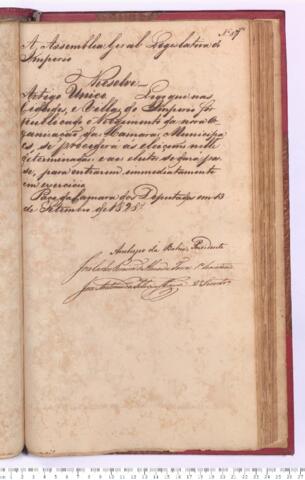 Nº 17
A Assemblea Geral Legislativa do
Imperio
Resolve
Artigo Unico. Logo que nas
Cidades, e Villas do Imperio for
publicado o Regimento da nova or
ganização das Camaras Municipa
es, se procederá ás eleições nelle
determinadas
de, para entrarem immediatamente
em exercicio
Paço da Camara dos Deputados em 13
de Setembro de 1828
Arcebispo da Bahia Presidente
José 1º Secretario
José Antonio da Silva 2º Secretario